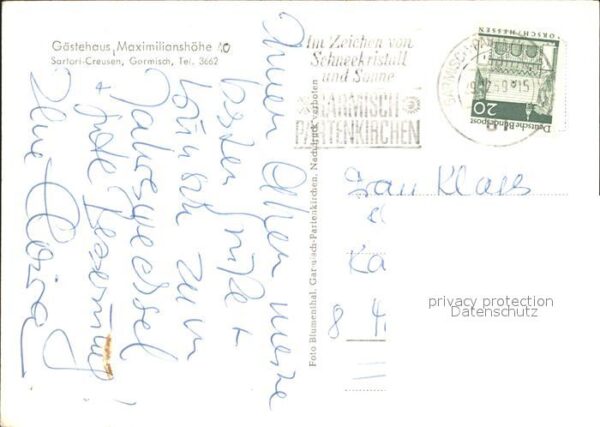 Gästehaus Maximilianshöhe
Sartori-Creusen, Garmisch, Tel. 3662
Ihnen Allen meine
besten Grüße +
Wünsche zum
Jahreswechsel
+ gute Besserung!
Ihre
Im Zeichen von
Schneekristall
und Sonne
GARMISCH
PARTENKIRCHEN
LORSCH/HESSEN
20
Deutsche Bundespost
Foto Blumenthal, Garmisch-Partenkirchen, Nachdruck verboten
Frau Klaes
8
privacy protection
Datenschutz